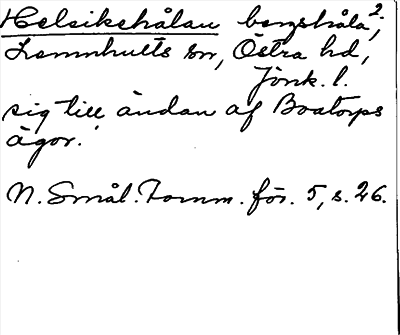 Helsikehålan bergshåla²,
Lemnhults sn, Östra hd,
Jönk. l.
sig till ändan af Boatorps
ägor.
N. Smål. Fornm. för. 5, s. 26.